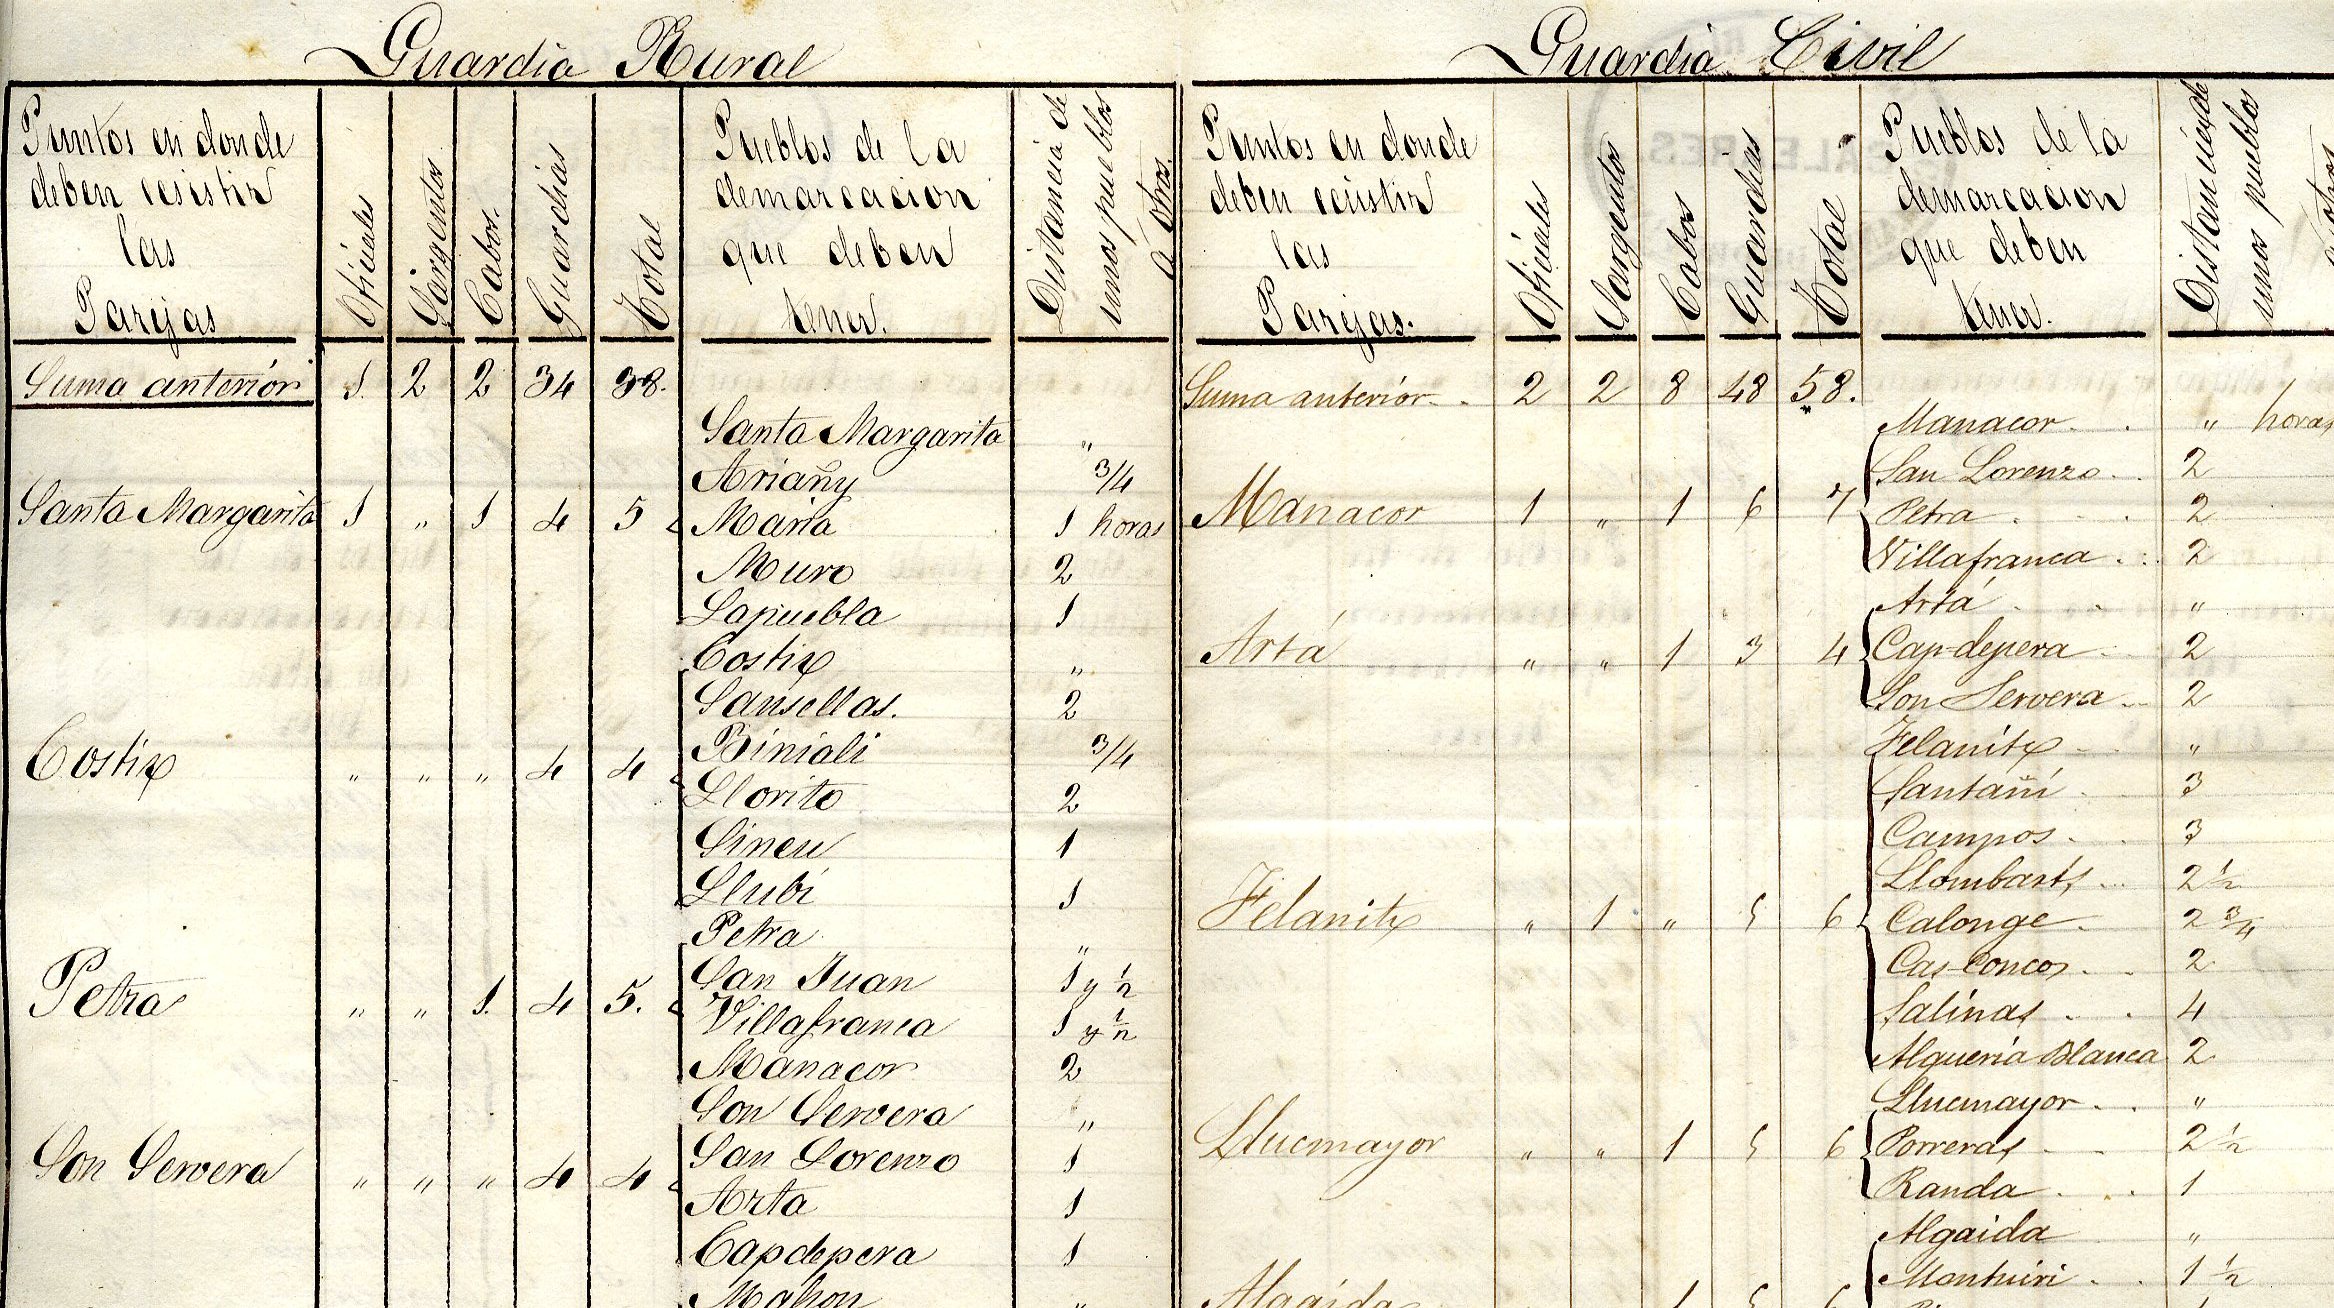 Guardia Rural
Puntos en donde deben ecsistir las Parejas | Oficiales | Sargentos | Cabos. | Guardias | Total | Pueblos de la demarcacion que deben tener. | Distancia de unos pueblos a otros.
Suma anterior | 1. | 2 | 2 | 34 | 38.
Santa Margarita | „
Ariañy | 3/4
Santa Margarita | 1 | „ | 1 | 4 | 5 | Maria | 1 horas
Muro | 2
Lapuebla | 1
Costix | „
Sansellas. | 2
Biniali | 3/4
Costix | „ | „ | „ | 4 | 4 | Llorito | 2
Sineu | 1
Llubí | 1
Petra | „
San Juan | 1 y 1/2
Petra | „ | „ | 1. | 4 | 5. | Villafranca | 1 y 1/2
Manacor | 2
Son Servera | „
San Lorenzo | 1
Son Servera | „ | „ | „ | 4 | 4 | Arta | 1
Capdepera | 1
Mahon | „
Guardia Civil
Puntos en donde deben ecsistir las Parejas. | Oficiales | Sargentos | Cabos | Guardias | Total | Pueblos de la demarcacion que deben tener. | Distancia de unos pueblos a otros
Suma anterior | 2 | 2 | 8 | 48 | 58.
Manacor | „ horas
San Lorenzo | 2
Manacor | 1 | „ | 1 | 6 | 7 | Petra | 2
Villafranca | 2
Artá | „
Artá | „ | „ | 1 | 3 | 4 | Cap-depera | 2
Son Servera | 2
Felanitx | „
Santañí | 3
Campos | 3
Llombarts | 2 1/2
Felanitx | „ | 1 | „ | 5 | 6 | Calonge | 2 3/4
Cas-Concos | 2
Salinas | 4
Alqueria Blanca | 2
Llucmayor | „
Llucmayor | „ | „ | 1 | 5 | 6 | Porreras | 2 1/2
Randa | 1
Algaida | „
Montuiri | 1 1/2
Algaida | 1 | 5 | 6